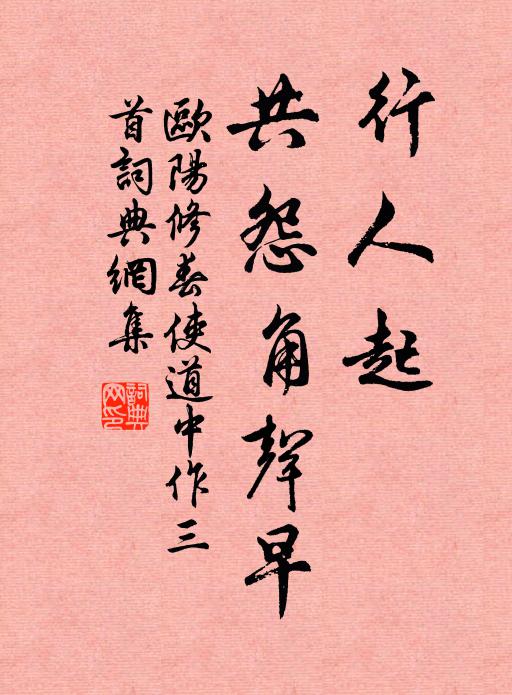 行人起
共怨角聲早
歐陽修春使道中作三
首詞典網集
詞典
网印